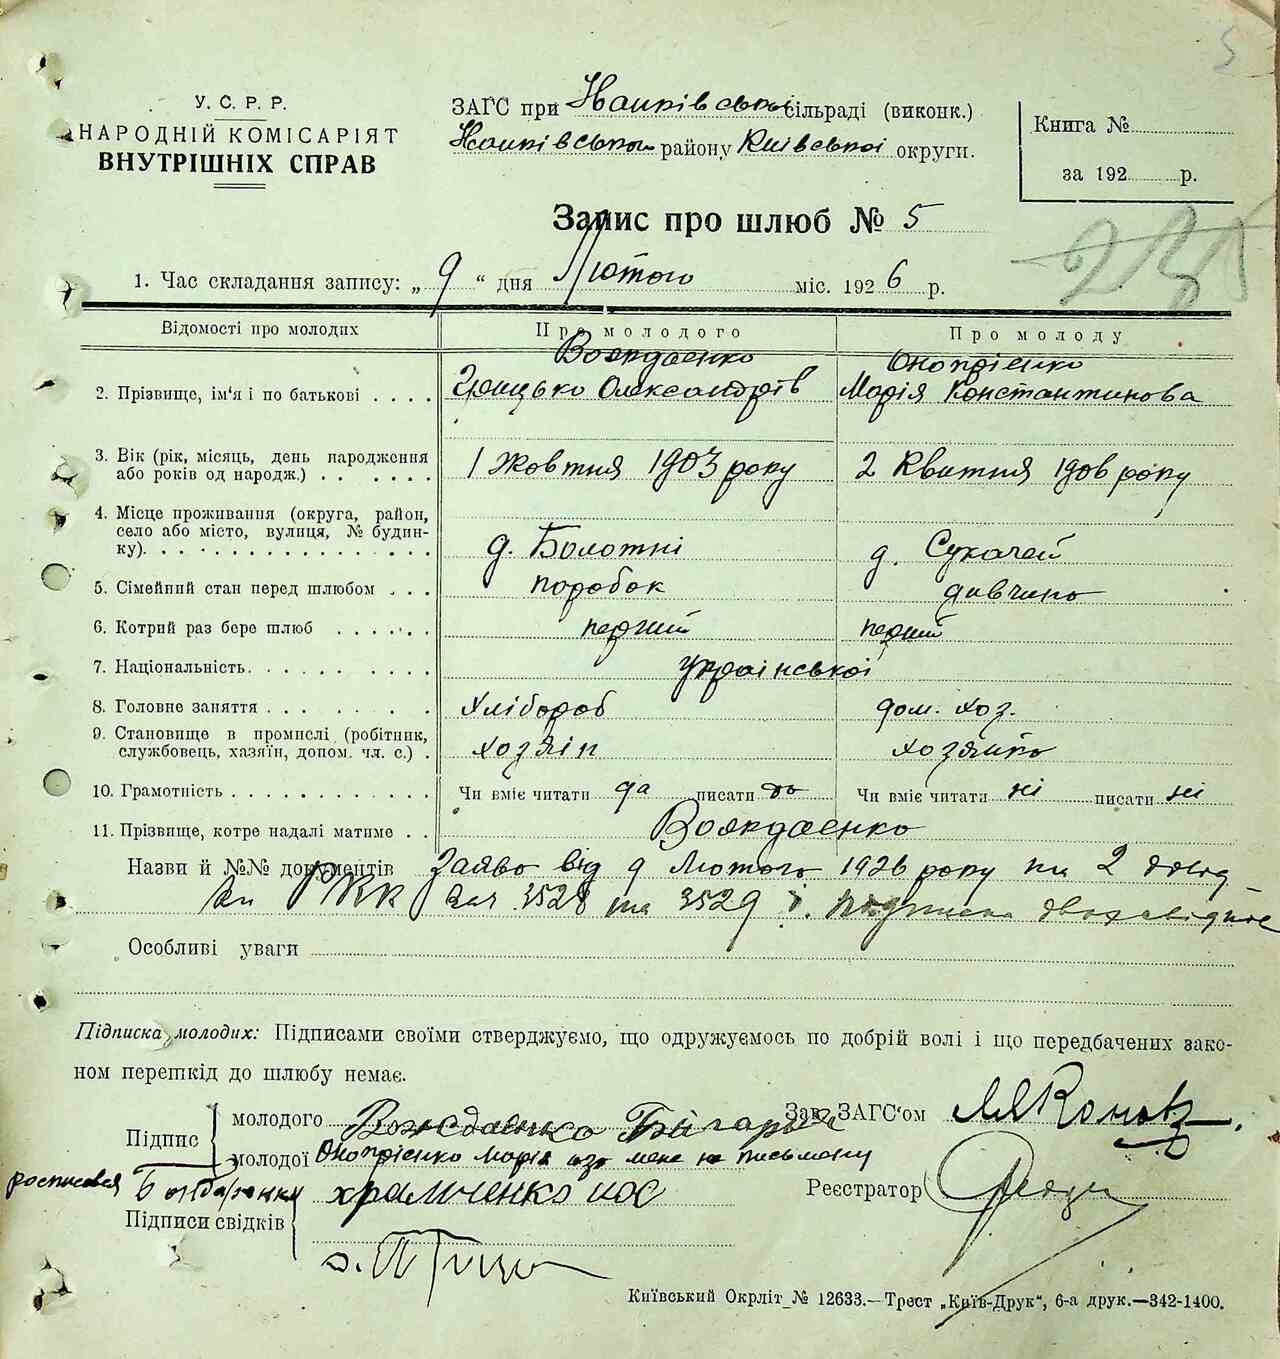 5
У. С. Р. Р.
НАРОДНІЙ КОМІСАРІЯТ
ВНУТРІШНІХ СПРАВ
ЗАГС при сільраді (виконк.)
району Київської округи.
Книга №
за 192 р.
Запис про шлюб № 5
1. Час складання запису: „ 9 “ дня Лютого міс. 1926 р.
Відомості про молодих
Про молодого
Про молоду
2. Прізвище, ім'я і по батькові
Грицько Олександрів
Онопрієнко
Марія Константинова
3. Вік (рік, місяць, день народження
або років од народж.)
1 Жовтня 1903 року
2 Квитня 1906 року
4. Місце проживання (округа, район,
село або місто, вулиця, № будин-
ку).
д. Болотні
д. Сукачей
5. Сімейний стан перед шлюбом
поробок
дивчина
6. Котрий раз бере шлюб
перший
перший
7. Національність
української
8. Головне заняття
Хлібороб
дом. хоз.
9. Становище в промислі (робітник,
службовець, хазяїн, допом. чл. с.)
хозяін
хозяйка
10. Грамотність
Чи вміє читати да писати да
Чи вміє читати ні писати ні
11. Прізвище, котре надалі матиме
Назви й №№ документів Заява від 9 Лютого 1926 року та 2
3528 та 3529 і. подписка
Особливі уваги
Підписка молодих: Підписами своїми стверджуємо, що одружуємось по добрій волі і що передбачених зако-
ном перешкід до шлюбу немає.
Підпис
молодого
молодої Онопрієнко Марія
Зав. ЗАГС'ом
росписався
Підписи свідків
Реєстратор
Київський Окрліт № 12633.—Трест „Київ-Друк“, 6-а друк.—342-1400.